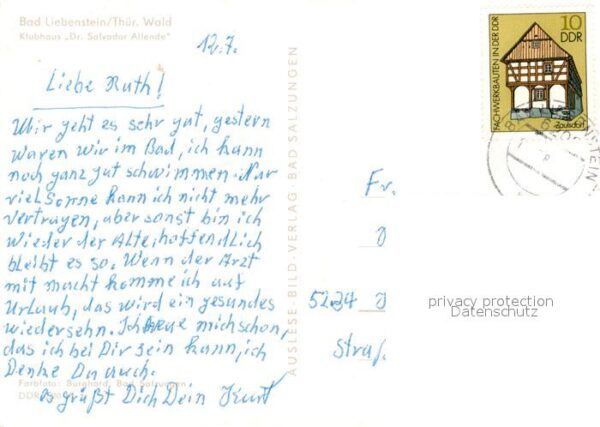 Bad Liebenstein/Thür. Wald
Klubhaus „Dr. Salvador Allende"
12.7.
Liebe Ruth!
Mir geht es sehr gut, gestern
waren wir im Bad, ich kann
noch ganz gut schwimmen. Nur
viel Sonne kann ich nicht mehr
vertragen, aber sonst bin ich
wieder der Alte, hoffendlich
bleibt es so. Wenn der Arzt
mit macht komme ich auf
Urlaub, das wird ein gesundes
wiedersehn. Ich freue mich schon,
das ich bei Dir sein kann, ich
Denke Du auch.
es grüßt Dich Dein Kurt
Farbfoto: Burghard, Bad Salzungen
DDR
AUSLESE-BILD-VERLAG · BAD SALZUNGEN
10
DDR
FACHWERKBAUTEN IN DER DDR
Zaulsdorf
NSTEIN
Fr.
J
5234 J
Straß.
privacy protection
Datenschutz